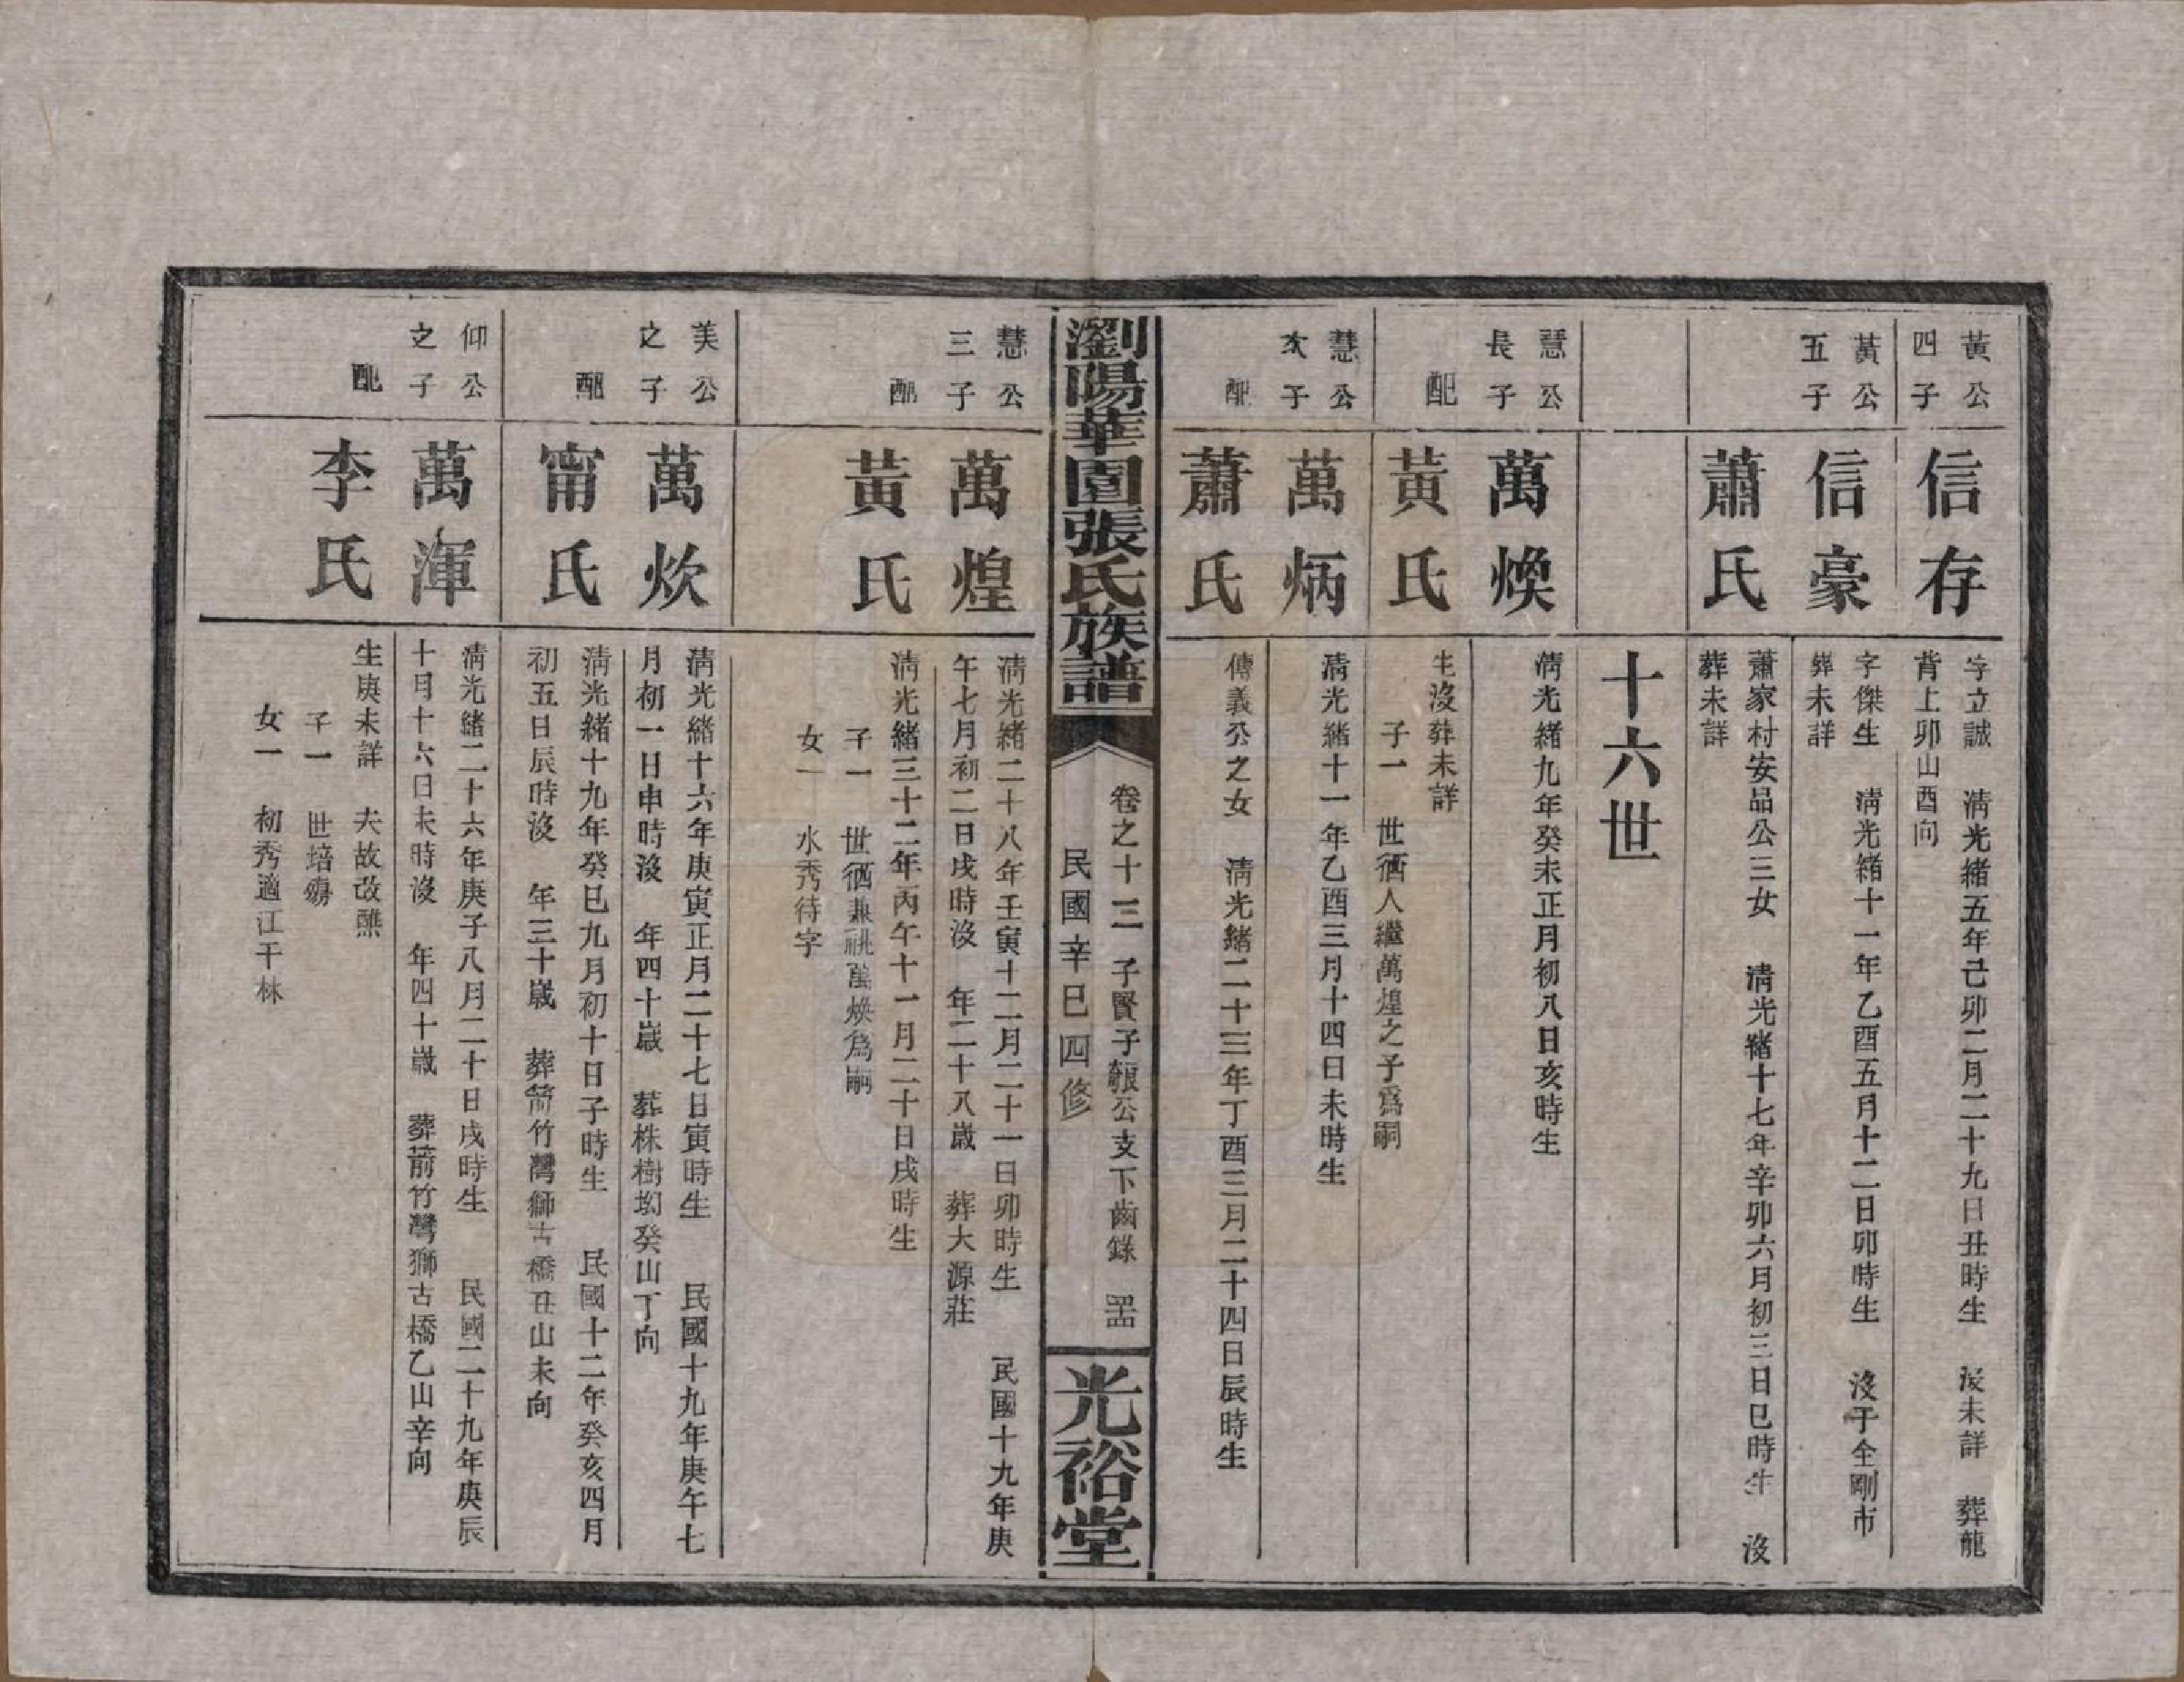 黃公
四子
信存
字立誠　清光緒五年己卯二月二十九日丑時生　沒未詳　葬龍
背上卯山酉向
黃公
五子
信豪
字傑生　清光緒十一年乙酉五月十二日卯時生　沒于金剛市
葬未詳
蕭氏
蕭家村安品公三女　清光緒十七年辛卯六月初三日巳時生　沒
葬未詳
十六世
慧公
長子
萬煥
清光緒九年癸未正月初八日亥時生
配
黃氏
生沒葬未詳
子一　世栖人繼萬煌之子爲嗣
慧公
次子
萬炳
清光緒十一年乙酉三月十四日未時生
配
蕭氏
傳義公之女　清光緒二十三年丁酉三月二十四日辰時生
瀏陽華園張氏族譜
卷之十三　子賢子公支下齒錄
民國辛巳四修
光裕堂
慧公
三子
萬煌
清光緒二十八年壬寅十二月二十一日卯時生　民國十九年庚
午七月初二日戌時沒　年二十八歲　葬大源莊
配
黃氏
清光緒三十二年丙午十一月二十日戌時生
子一　世栖兼祧萬煥爲嗣
女一　水秀待字
美公
之子
萬炊
清光緒十六年庚寅正月二十七日寅時生　民國十九年庚午七
月初一日申時沒　年四十歲　葬株樹坳癸山丁向
配
甯氏
清光緒十九年癸巳九月初十日子時生　民國十二年癸亥四月
初五日辰時沒　年三十歲　葬箭竹灣獅古橋丑山未向
仰公
之子
萬渾
清光緒二十六年庚子八月二十日戌時生　民國二十九年庚辰
十月十六日未時沒　年四十歲　葬箭竹灣獅古橋乙山辛向
配
李氏
生庚未詳　夫故改醮
子一　世培殤
女一　初秀適江干林